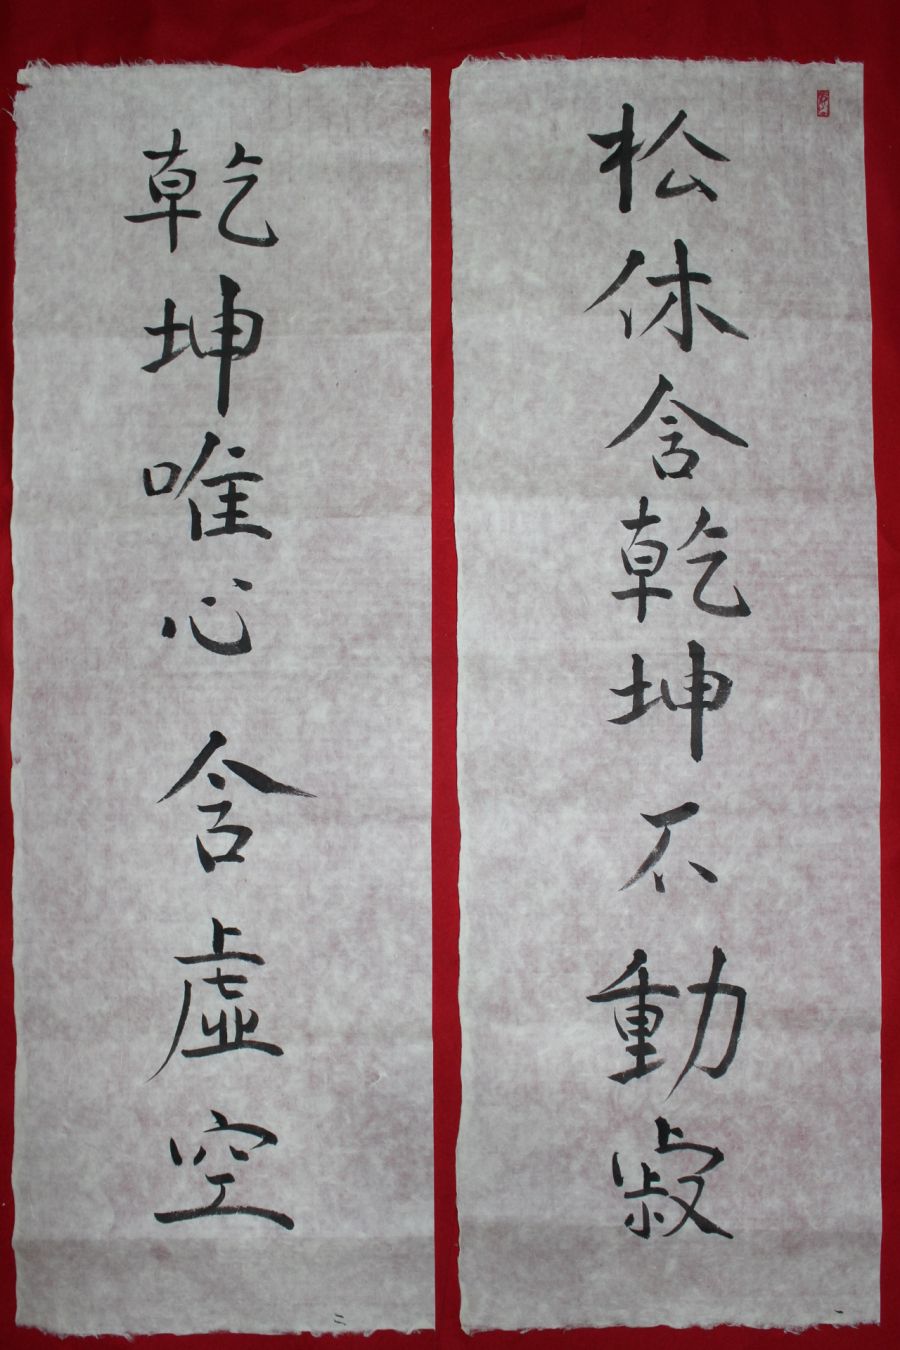 松休含乾坤不動寂
一
乾坤唯心含虛空
二